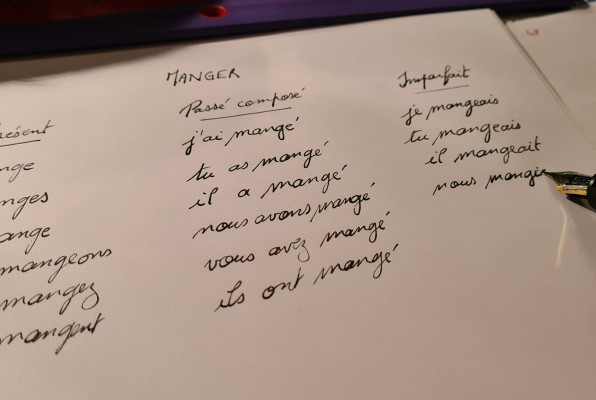 MANGER
résent
nge
nges
ange
mangeons
mangez
mangent
Passé composé
j'ai mangé
tu as mangé
il a mangé
nous avons mangé
vous avez mangé
ils ont mangé
Imparfait
je mangeais
tu mangeais
il mangeait
nous mangi